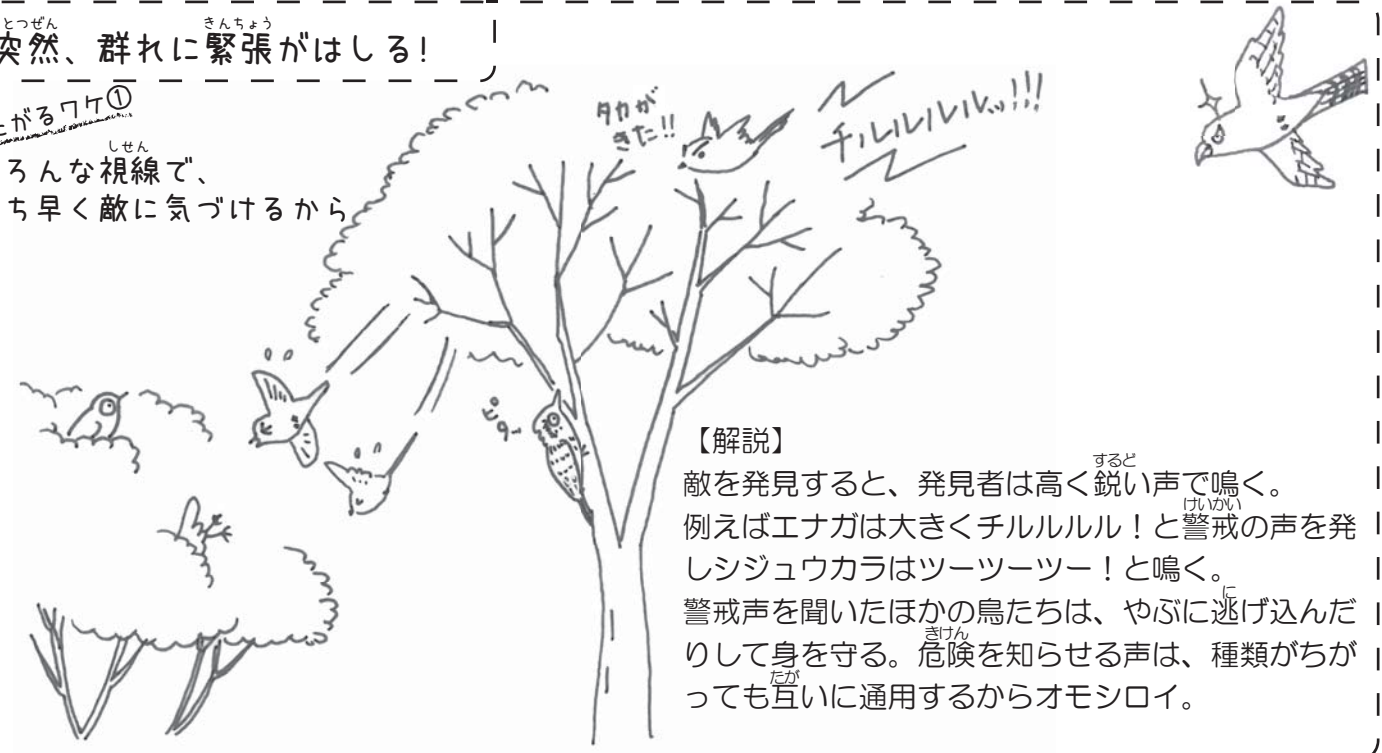 突然、群れに緊張がはしる!
とつぜん
きんちょう
がるワケ①
ろんな視線で、
しせん
ち早く敵に気づけるから
タカが
きた!!
チルルルルッ!!!
【解説】
敵を発見すると、発見者は高く鋭い声で鳴く。
するど
例えばエナガは大きくチルルルル！と警戒の声を発
けいかい
しシジュウカラはツーツーツー！と鳴く。
警戒声を聞いたほかの鳥たちは、やぶに逃げ込んだ
に
りして身を守る。危険を知らせる声は、種類がちが
きけん
っても互いに通用するからオモシロイ。
たが